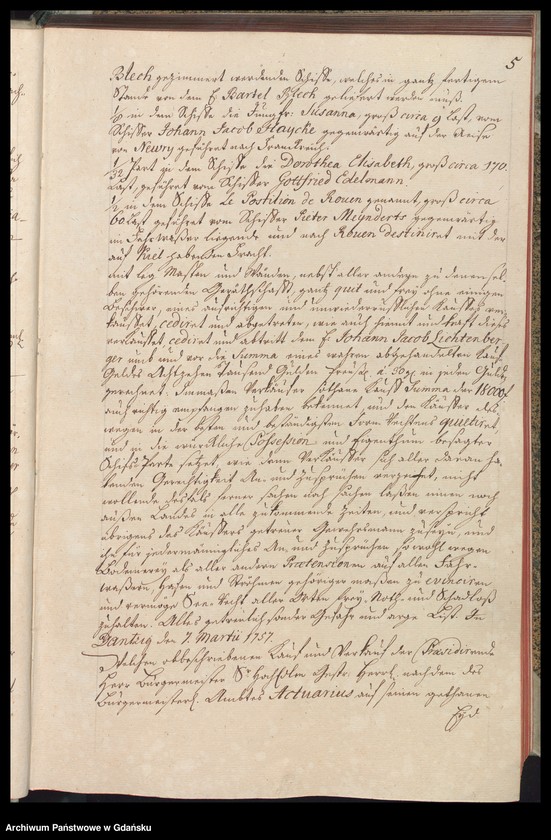 5
Blech gezimmert werdenden Schiffe, welches in gantz fertigem
Stande von dem H. Bartel Blech geliefert werden muß.
in dem Schiffe die Jungfr: Susanna, groß circa 9 Last, vom
Schiffer Johann Jacob Haycke gegenwärtig auf der Reise
von Newry geführet nach Frankreich.
1/32 Part in dem Schiffe die Dorothea Elisabeth, groß circa 170
Last, geführet vom Schiffer Gottfried Edelmann,
1/2 in dem Schiffe Le Postition de Rouen genannt, groß circa
60 Last geführet vom Schiffer Pieter Meynderts gegenwärtig
im Fahrwaßer liegende und nach Rouen destiniret mit der
auf habenden Fracht.
mit Masten und Wänden, nebst aller andern zu denensel-
ben gehörenden Geräthschafft, gantz quit und frey ohne einigen
Beschwer, eines aufrichtigen und unwiederruflichen Kauffes ver-
kauffet, cediret und abgetreten, wie auch hiemit und kraft dieses
verkauffet, cediret und abtritt dem H. Johann Jacob Lichtenber-
ger umb und vor die Summa eines wahren abgehandelten Kauf-
Geldes Achtzehen Tausend Gulden à 30 gr. in jeden Gulden
gerechnet. Immaßen Verkäufer sothane Kauff Summa der 18000 f
aufrichtig empfangen zu haben bekennet, und den Käuffer des-
wegen in der besten und beständigsten Form Rechtens quitiret,
und in die würckliche Possession und Eigenthum besagter
Schiffs Parte setzet, wie denn Verkäuffer sich aller daran ha-
benden Gerechtigkeit An- und Zusprüchen verzeihet, nicht
wollende deshalb ferner sachen noch sachen laßen innen noch
außer Landes in alle zukommende Zeiten, und verspricht
übrigens des Käuffers getreuer Gewehrsmann zu seyn, und
ihn für jedermännigliches An- und Zusprüchen so wohl wegen
Bodemerey als aller andern Praetensionen auf allen Fahr-
waßern, Hafen und Ströhmen gehöriger maßen zu evinciren
und vermöge See-Recht aller Orten frey, Noth- und Schadloß
zu halten. Alles getreulich sonder Gefähr und arge List. In
Dantzig den 7. Martii 1757.
Welchen obbeschriebenen Kauf und Verkauf der Praesidirende
Herr Bürgermeister Sr. nachdem des
Bürgermeisterl. Ambtes Actuarius auf seinen gethanen
Eyd
Archiwum Państwowe w Gdańsku